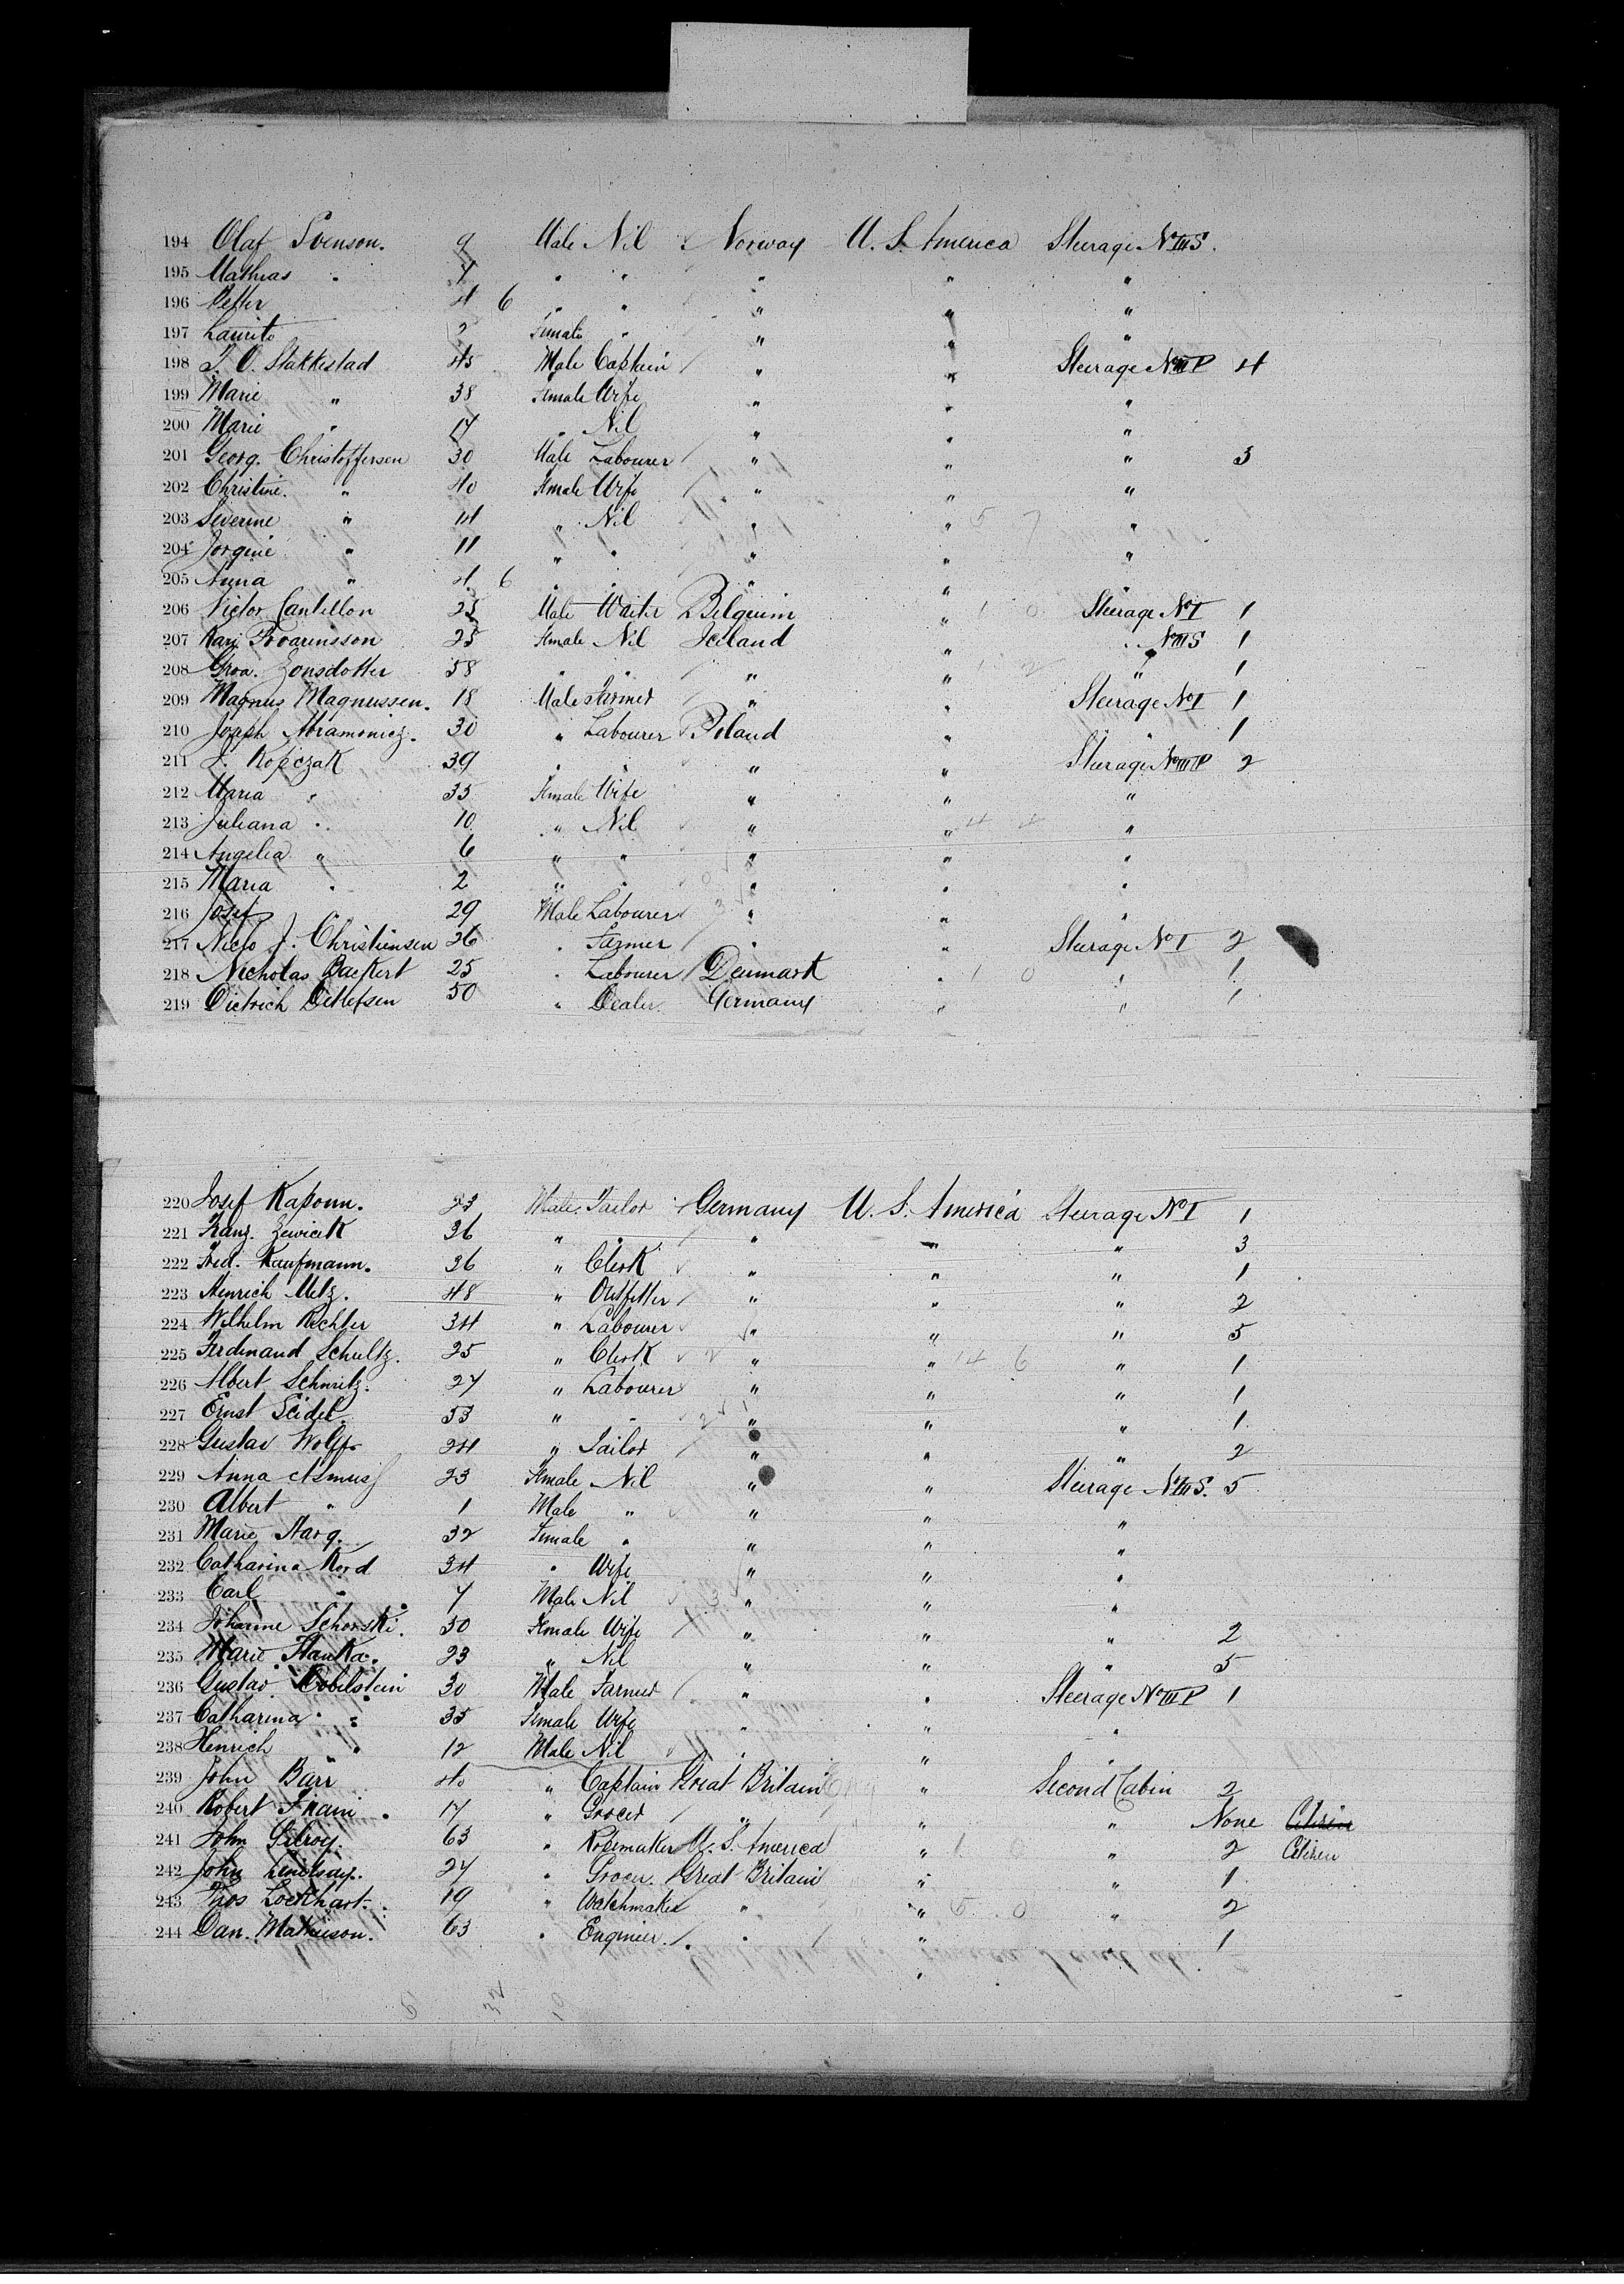 194 Olaf Svenson. 9 Male Nil Norway U. S. America Steerage No III S.
195 Mathias " 7 " " " " "
196 Petter 4 6 " " " " "
197 Laurits 2 Female " " " "
198 J. O. Stakkestad 45 Male Captain " " Steerage No III P 4
199 Marie " 38 Female Wife " " "
200 Marie " 17 " Nil " " "
201 Georg. Christoffersen 30 Male Labourer " " " 3
202 Christine. " 40 Female Wife " " "
203 Severine " 14 " Nil " " 5 7 "
204 Jorgine " 11 " " " " "
205 Anna " 4 6 " " " " "
206 Victor Cantillon 25 Male Waiter Belguim " 1 0 Steerage No I 1
207 Karj. 25 Female Nil Iceland " " No III S 1
208 Groa. Zonsdotter 58 " " " " 1 2 " 1
209 Magnus Magnussen. 18 Male Farmer " " Steerage No I 1
210 Joseph Abramovicz. 30 " Labourer Poland " " 1
211 J. Kopczak 39 " " " " Steerage No III P 2
212 Maria " 35 Female Wife " " "
213 Juliana " 10 " Nil " " 4 4 "
214 Angelia " 6 " " " " "
215 Maria " 2 " " " " "
216 Josef 29 Male Labourer " " "
217 Niels J. Christiensen 26 " Farmer " " Steerage No I 2
218 Nicholas Backert 25 " Labourer Denmark " 1 0 " 1
219 Dietrich Detlefsen 50 " Dealer. Germany " " 1
220 Josef Kapoun. 23 Male. Tailor Germany U. S. America Steerage No I 1
221 Franz. Zewicek 36 " " " " " 3
222 Fred. Kaufmann. 36 " Clerk " " " 1
223 Henrich Metz. 48 " Outfitter " " " 2
224 Wilhelm Richter 34 " Labourer " " " 5
225 Ferdinand Schultz. 25 " Clerk " " 14 6 " 1
226 Albert Schmitz. 27 " Labourer " " " 1
227 Ernst Seidel. 53 " " " " " 1
228 Gustav Wolff 24 " Tailor " " " 2
229 Anna Asmus 23 Female Nil " " Steerage No III S. 5
230 Albert " 1 Male " " " "
231 Marie Harg. 32 Female " " " "
232 Catharina Kord 34 " Wife " " "
233 Carl " 7 Male Nil " " "
234 Johanne Schorski. 50 Female Wife " " " 2
235 Marie Hanka. 23 " Nil " " " 5
236 Gustav Cobelstein 30 Male Farmer " " Steerage No III P 1
237 Catharina " 35 Female Wife " " "
238 Henrich " 12 Male Nil " " "
239 John Barr 40 " Captain Great Britain " Second Cabin 2
240 Robert 17 " Grocer " " " None Citizen
241 John Gilroy. 63 " Ropemaker U. S. America " 1 0 " 2 Citizen
242 John Lindsay. 27 " Grocer. Great Britain " " 1
243 Thos Lockhart. 19 " Watchmaker " " 5 0 " 2
244 Dan. Mathieson. 63 " Engineer. " " " 1